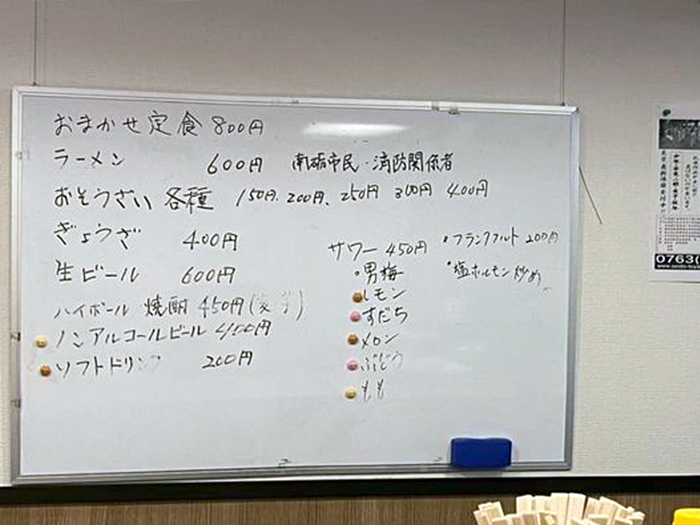 おまかせ定食 800円
ラーメン 600円 南砺市民・消防関係者
おそうざい 各種 150円、200円、250円 300円 400円
ぎょうざ 400円
生ビール 600円
ハイボール 焼酎 450円(麦 芋)
ノンアルコールビール 400円
ソフトドリンク 200円
サワー 450円
・男梅
レモン
すだち
メロン
ぶどう
もも
・フランクフルト 200円
・塩ホルモン炒め
0763